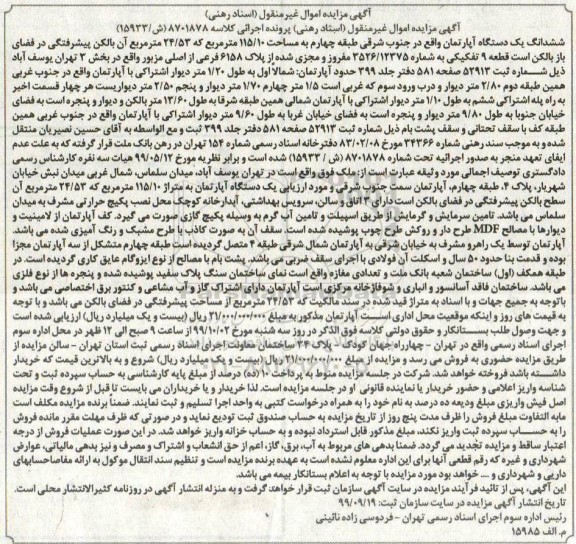 آگهی مزایده اموال غیرمنقول (اسناد رهنی)
آگهی مزایده اموال غیرمنقول (اسناد رهنی) پرونده اجرائی کلاسه ۸۷۰۱۸۷۸ (ش/۱۵۹۳۳)
ششدانگ یک دستگاه آپارتمان واقع در جنوب شرقی طبقه چهارم به مساحت ۱۱۵/۱۰ مترمربع که ۲۴/۵۳ مترمربع آن بالکن پیشرفتگی در فضای
باز بالکن است قطعه ۹ تفکیکی به شماره ۳۵۲۶/۱۲۳۷۵ مفروز و مجزی شده از پلاک ۶۱۵۸ فرعی از اصلی مزبور واقع در بخش ۳ تهران یوسف آباد
ذیل شماره ثبت ۵۲۹۱۳ صفحه ۵۸۱ دفتر جلد ۳۹۹ حدود آپارتمان: شمالاً اول به طول ۱/۲۰ متر دیوار اشتراکی با آپارتمان واقع در جنوب غربی
همین طبقه دوم ۲/۸۰ متر دیوار و درب ورود سوم که غربی است ۱/۵ متر چهارم ۱/۷۰ متر دیوار و پنجم ۲/۵۰ متر دیواریست هر چهار قسمت اخیر
به راه پله اشتراکی ششم به طول ۱/۱۰ متر دیوار اشتراکی با آپارتمان شمالی همین طبقه شرقا به طول ۱۳/۶۰ متر بالکن و دیوار و پنجره است به فضای
خیابان جنوبا به طول ۹/۸۰ متر دیوار و پنجره است به فضای خیابان غربا به طول ۹/۶۰ متر دیوار اشتراکی با آپارتمان واقع در جنوب غربی همین
طبقه کف با سقف تحتانی و سقف پشت بام ذیل شماره ثبت ۵۲۹۱۳ صفحه ۵۸۱ دفتر جلد ۳۹۹ ثبت و مع الواسطه به آقای حسین نصیریان منتقل
شده و به موجب سند رهنی شماره ۳۴۳۶۶ مورخ ۸۳/۰۲/۰۸ دفترخانه اسناد رسمی شماره ۱۵۴ تهران در رهن بانک ملت قرار گرفته که به علت عدم
ایفای تعهد منجر به صدور اجرائیه تحت شماره ۸۷۰۱۸۷۸ (ش / ۱۵۹۳۳) شده است و برابر نظریه مورخ ۹۹/۰۵/۱۲ هیات سه نفره کارشناس رسمی
دادگستری توصیف اجمالی مورد وثیقه عبارت است از: ملک فوق واقع است در تهران یوسف آباد، میدان سلماس، شمال غربی میدان نبش خیابان
شهریار، پلاک ۴، طبقه چهارم، آپارتمان سمت جنوب شرقی و مورد ارزیابی یک دستگاه آپارتمان به متراژ ۱۱۵/۱۰ مترمربع که ۲۴/۵۳ مترمربع آن
سطح بالکن پیشرفتگی در فضای بالکن است دارای ۳ اتاق و سالن، سرویس بهداشتی، آبدارخانه کوچک محل نصب پکیج حرارتی مشرف به میدان
سلماس می باشد. تامین سرمایش و گرمایش از طریق اسپیلت و تامین آب گرم به وسیله پکیج گازی صورت می گیرد. کف آپارتمان از لامینیت و
دیوارها با مصالح MDF طرح دار و روکش طرح چوب پوشیده شده است. سقف آن به صورت کاذب با طرح مشبک و رنگ آمیزی شده می باشد.
آپارتمان توسط یک راهرو مشرف به خیابان شرقی به آپارتمان شمال شرقی طبقه ۴ متصل گردیده است طبقه چهارم متشکل از سه آپارتمان مجزا
بوده و قدمت بنا حدود ۵۰ سال و اسکلت آن فولادی با اجرای سقف ضربی می باشد. پشت بام با مصالح از نوع ایزوگام عایق کاری گردیده است. در
طبقه همکف (اول) ساختمان شعبه بانک ملت و تعدادی مغازه واقع است نمای ساختمان سنگ پلاک سفید پوشیده شده و پنجره ها از نوع فلزی
می باشد. ساختمان فاقد آسانسور و انباری و شوفاژخانه مرکزی است آپارتمان دارای اشتراک گاز و آب مشاعی و کنتور برق اختصاصی می باشد و
باتوجه به جمیع جهات و با اسناد به متراژ قید شده در سند مالکیت که ۲۴/۵۳ مترمربع از مساحت پیشرفتگی در فضای بالکن می باشد و با توجه
به قیمت های روز و اینکه موقعیت محل اداری است آپارتمان مذکور به مبلغ ۲۱/۰۰۰/۰۰۰/۰۰۰ ریال (بیست و یک میلیارد ریال) ارزیابی شده است
و جهت وصول طلب بستانکار و حقوق دولتی کلاسه فوق الذکر در روز سه شنبه مورخ ۹۹/۱۰/۰۲ از ساعت ۹ صبح الی ۱۲ ظهر در محل اداره سوم
اجرای اسناد رسمی واقع در تهران – چهارراه جهان کودک – پلاک ۲۴ ساختمان معاونت اجرای اسناد رسمی ثبت استان تهران – سالن مزایده از
طریق مزایده حضوری به فروش می رسد و مزایده از مبلغ ۲۱/۰۰۰/۰۰۰/۰۰۰ ریال (بیست و یک میلیارد ریال) شروع و به بالاترین قیمت که خریدار
داشته باشد فروخته خواهد شد. شرکت در جلسه مزایده منوط به پرداخت ۱۰(ده) درصد از مبلغ پایه کارشناسی به حساب سپرده ثبت و تحت
شناسه واریز اعلامی و حضور خریدار یا نماینده قانونی او در جلسه مزایده است. لذا خریدار و یا خریداران می بایست تا قبل از شروع وقت مزایده
اصل فیش واریزی مبلغ ودیعه ده درصد به نام خود را به همراه درخواست کتبی به واحد اجرا تسلیم و ثبت نمایند. ضمناً برنده مزایده مکلف است
مابه التفاوت مبلغ فروش را ظرف مدت پنج روز از تاریخ مزایده به حساب صندوق ثبت تودیع نماید و در صورتی که ظرف مهلت مقرر مانده فروش
را به حساب سپرده ثبت واریز نکند، مبلغ مذکور قابل استرداد نبوده و به حساب خزانه واریز خواهد شد. در این صورت عملیات فروش از درجه
اعتبار ساقط و مزایده تجدید می گردد. ضمنا بدهی های مربوط به آب، برق، گاز، اعم از حق انشعاب و اشتراک و مصرف و نیز بدهی مالیاتی، عوارض
شهرداری و غیره که رقم قطعی آنها برای این اداره معلوم نشده است به عهده برنده مزایده است و تنظیم سند انتقال موکول به ارائه مفاصاحسابهای
دارایی و شهرداری و .... خواهد بود مورد مزایده با توجه به اعلام بستانکار بیمه می باشد.
این آگهی، پس از تائید فرآیند مزایده در سایت آگهی سازمان ثبت قرار خواهد گرفت و به منزله انتشار آگهی در روزنامه کثیرالانتشار محلی است.
تاریخ انتشار آگهی مزایده در سایت سازمان ثبت: ۹۹/۰۹/۱۹
رئیس اداره سوم اجرای اسناد رسمی تهران – فردوسی زاده نائینی
م. الف ۱۵۹۸۵